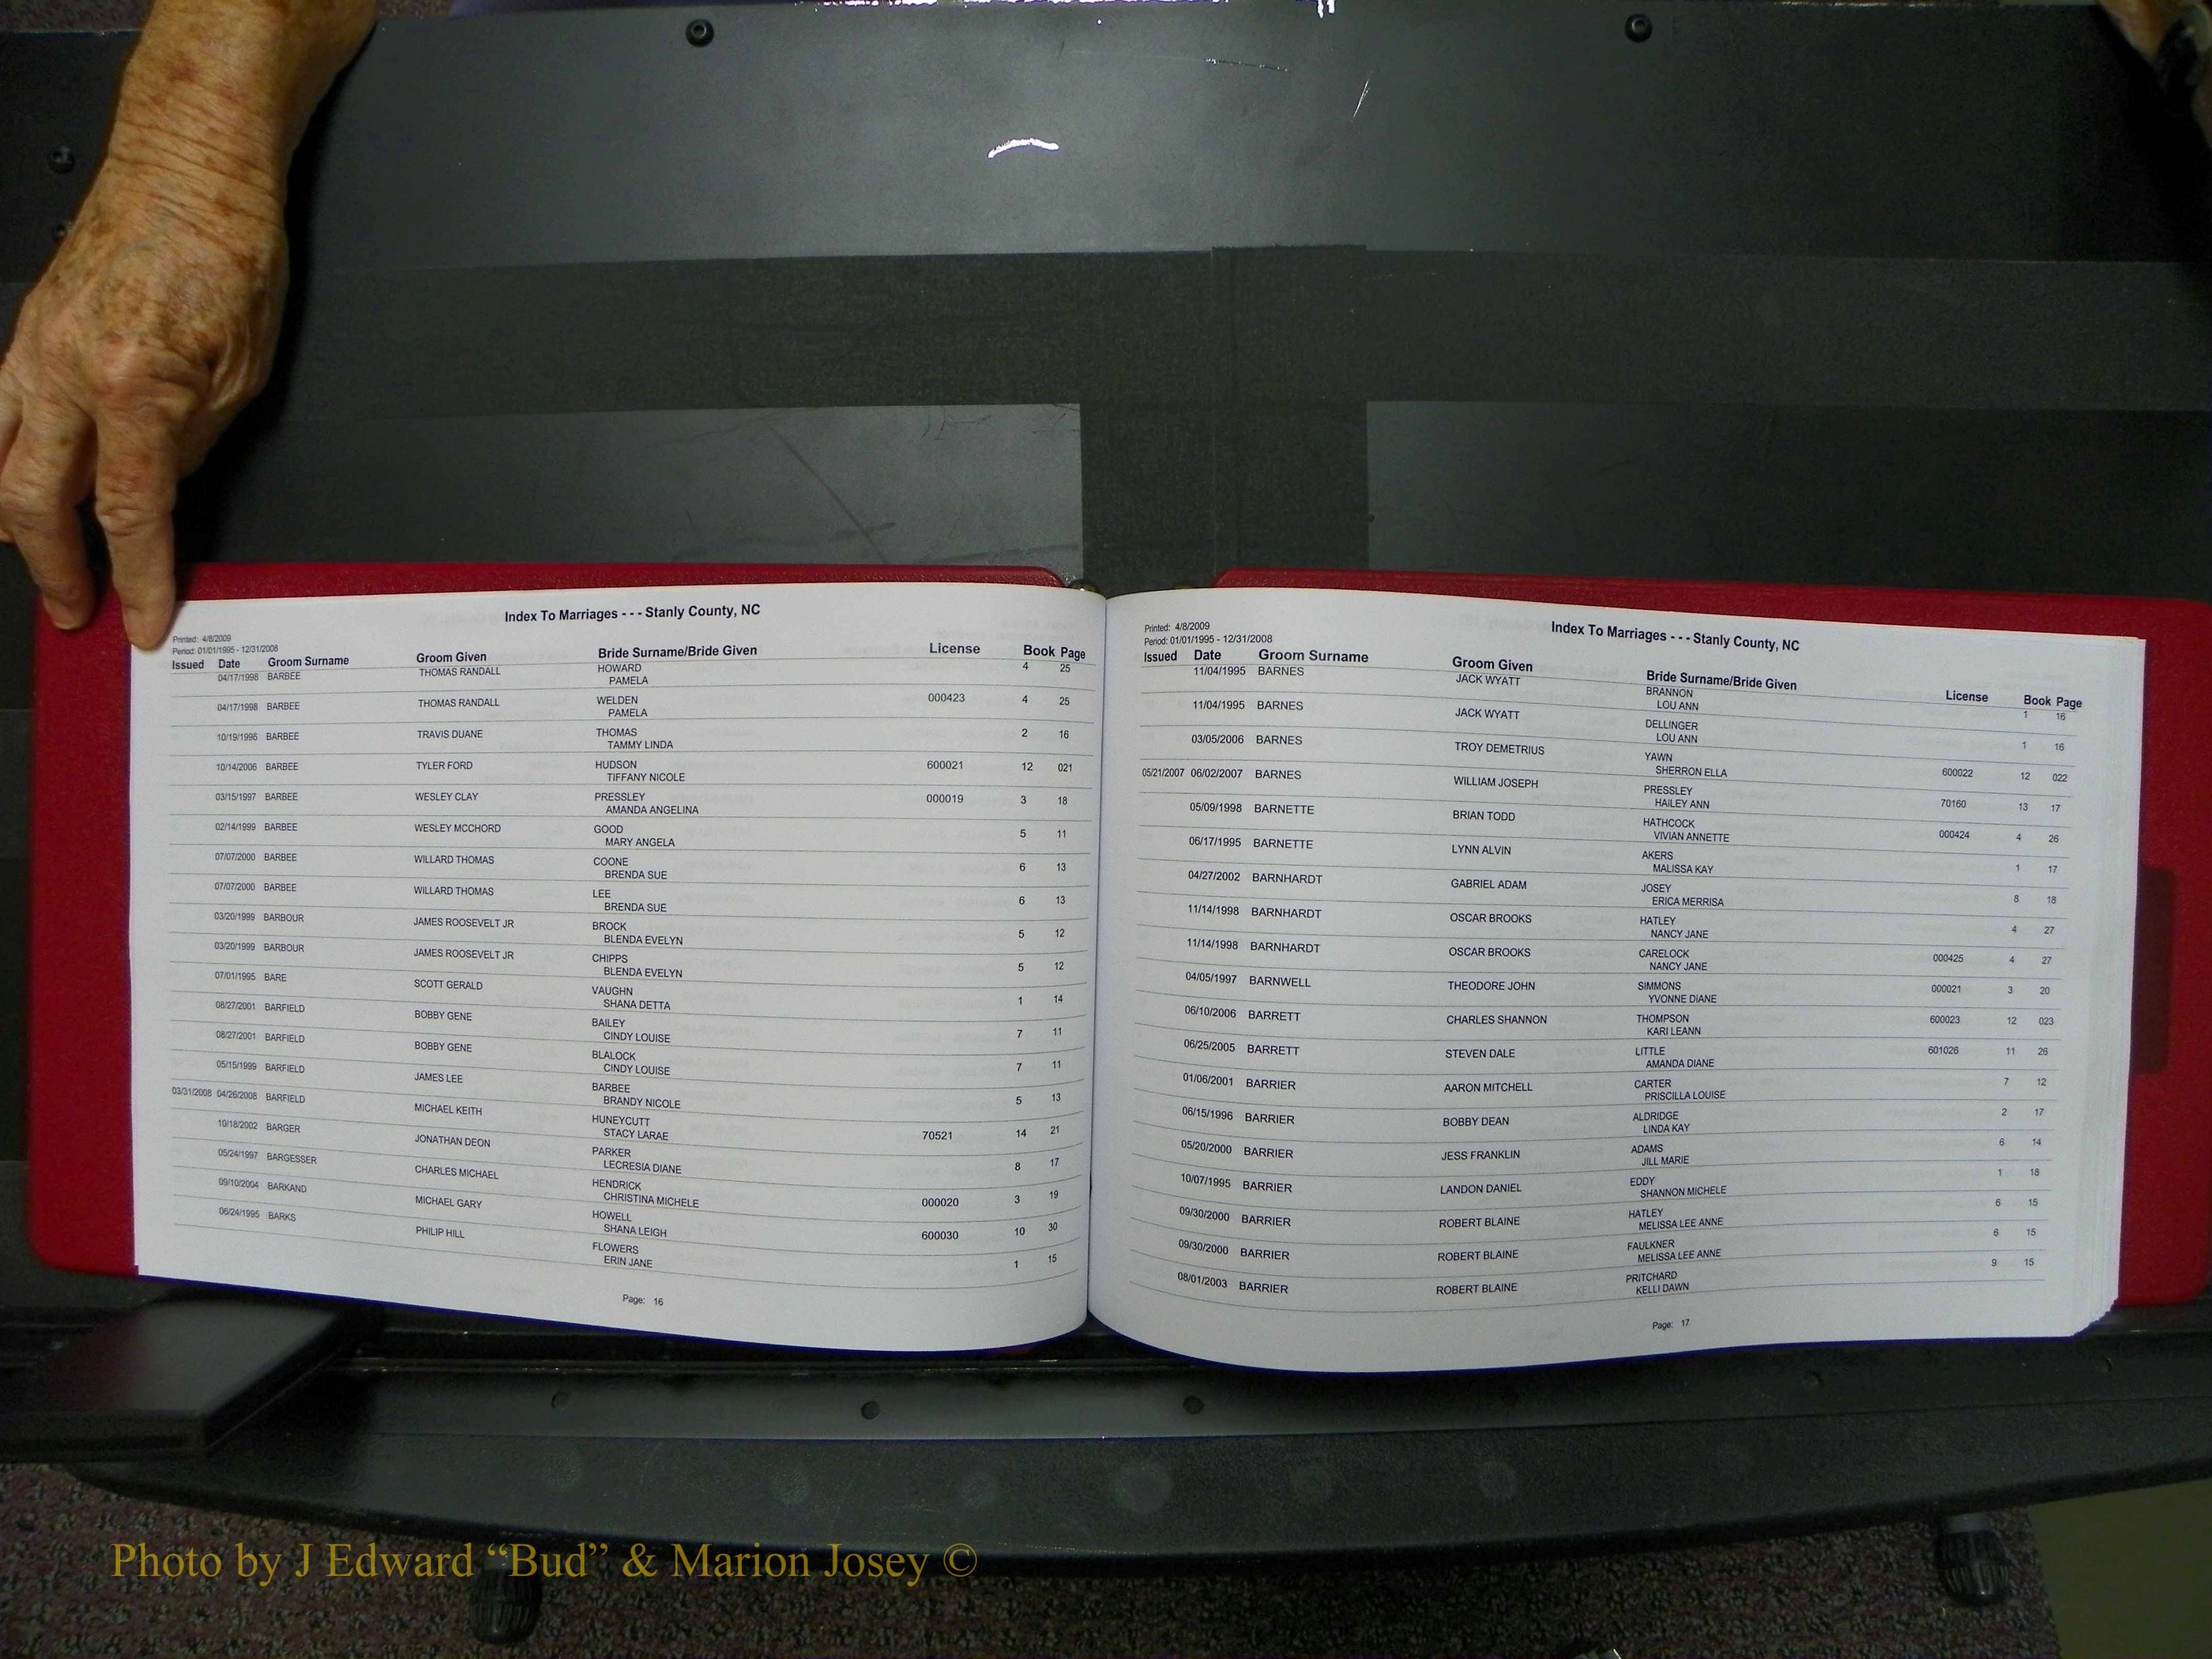 Index To Marriages - - - Stanly County, NC
Printed: 4/8/2009
Period: 01/01/1995 - 12/31/2008
Issued Date Groom Surname Groom Given Bride Surname/Bride Given License Book Page
04/17/1998 BARBEE THOMAS RANDALL HOWARD 4 25
PAMELA
04/17/1998 BARBEE THOMAS RANDALL WELDEN 000423 4 25
PAMELA
10/19/1996 BARBEE TRAVIS DUANE THOMAS 2 16
TAMMY LINDA
10/14/2006 BARBEE TYLER FORD HUDSON 600021 12 021
TIFFANY NICOLE
03/15/1997 BARBEE WESLEY CLAY PRESSLEY 000019 3 18
AMANDA ANGELINA
02/14/1999 BARBEE WESLEY MCCHORD GOOD 5 11
MARY ANGELA
07/07/2000 BARBEE WILLARD THOMAS COONE 6 13
BRENDA SUE
07/07/2000 BARBEE WILLARD THOMAS LEE 6 13
BRENDA SUE
03/20/1999 BARBOUR JAMES ROOSEVELT JR BROCK 5 12
BLENDA EVELYN
03/20/1999 BARBOUR JAMES ROOSEVELT JR CHIPPS 5 12
BLENDA EVELYN
07/01/1995 BARE SCOTT GERALD VAUGHN 1 14
SHANA DETTA
08/27/2001 BARFIELD BOBBY GENE BAILEY 7 11
CINDY LOUISE
08/27/2001 BARFIELD BOBBY GENE BLALOCK 7 11
CINDY LOUISE
05/15/1999 BARFIELD JAMES LEE BARBEE 5 13
BRANDY NICOLE
03/31/2008 04/26/2008 BARFIELD MICHAEL KEITH HUNEYCUTT 70521 14 21
STACY LARAE
10/18/2002 BARGER JONATHAN DEON PARKER 8 17
LECRESIA DIANE
05/24/1997 BARGESSER CHARLES MICHAEL HENDRICK 000020 3 19
CHRISTINA MICHELE
09/10/2004 BARKAND MICHAEL GARY HOWELL 600030 10 30
SHANA LEIGH
06/24/1995 BARKS PHILIP HILL FLOWERS 1 15
ERIN JANE
Page: 16
Index To Marriages - - - Stanly County, NC
Printed: 4/8/2009
Period: 01/01/1995 - 12/31/2008
Issued Date Groom Surname Groom Given Bride Surname/Bride Given License Book Page
11/04/1995 BARNES JACK WYATT BRANNON 1 16
LOU ANN
11/04/1995 BARNES JACK WYATT DELLINGER 1 16
LOU ANN
03/05/2006 BARNES TROY DEMETRIUS YAWN 600022 12 022
SHERRON ELLA
05/21/2007 06/02/2007 BARNES WILLIAM JOSEPH PRESSLEY 70160 13 17
HAILEY ANN
05/09/1998 BARNETTE BRIAN TODD HATHCOCK 000424 4 26
VIVIAN ANNETTE
06/17/1995 BARNETTE LYNN ALVIN AKERS 1 17
MALISSA KAY
04/27/2002 BARNHARDT GABRIEL ADAM JOSEY 8 18
ERICA MERRISA
11/14/1998 BARNHARDT OSCAR BROOKS HATLEY 4 27
NANCY JANE
11/14/1998 BARNHARDT OSCAR BROOKS CARELOCK 000425 4 27
NANCY JANE
04/05/1997 BARNWELL THEODORE JOHN SIMMONS 000021 3 20
YVONNE DIANE
06/10/2006 BARRETT CHARLES SHANNON THOMPSON 600023 12 023
KARI LEANN
06/25/2005 BARRETT STEVEN DALE LITTLE 601026 11 26
AMANDA DIANE
01/06/2001 BARRIER AARON MITCHELL CARTER 7 12
PRISCILLA LOUISE
06/15/1996 BARRIER BOBBY DEAN ALDRIDGE 2 17
LINDA KAY
05/20/2000 BARRIER JESS FRANKLIN ADAMS 6 14
JILL MARIE
10/07/1995 BARRIER LANDON DANIEL EDDY 1 18
SHANNON MICHELE
09/30/2000 BARRIER ROBERT BLAINE HATLEY 6 15
MELISSA LEE ANNE
09/30/2000 BARRIER ROBERT BLAINE FAULKNER 6 15
MELISSA LEE ANNE
08/01/2003 BARRIER ROBERT BLAINE PRITCHARD 9 15
KELLI DAWN
Page: 17
Photo by J Edward “Bud” & Marion Josey ©